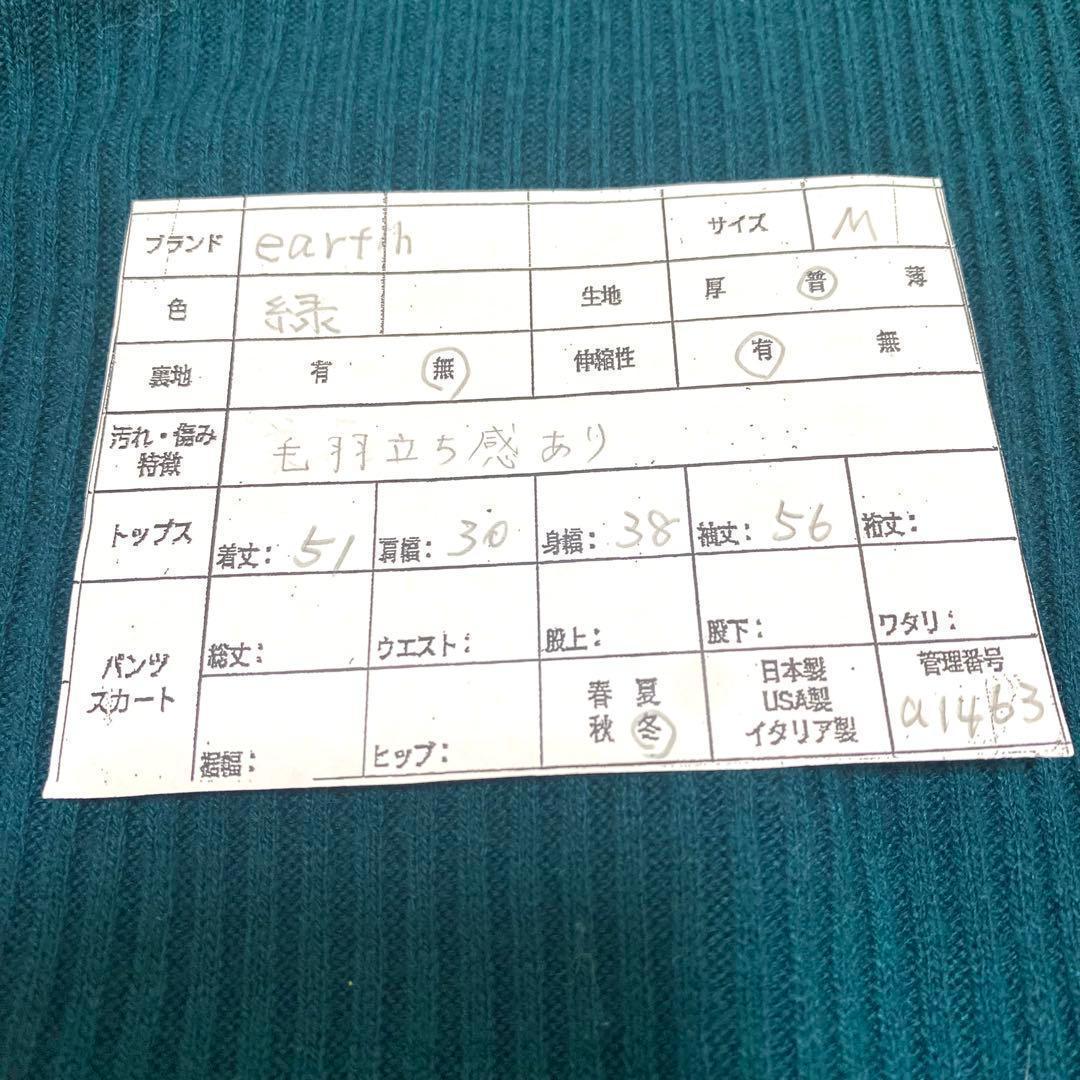 ブランド earth サイズ M
色 緑 生地 厚 普 薄
裏地 有 無 伸縮性 有 無
汚れ・傷み
特徴 毛羽立ち感あり
トップス 着丈: 51 肩幅: 30 身幅: 38 袖丈: 56 裄丈:
パンツ
スカート
総丈: ウエスト: 股上: 股下: ワタリ:
裾幅: ヒップ:
春 夏
秋 冬
日本製
USA製
イタリア製
管理番号
a1463